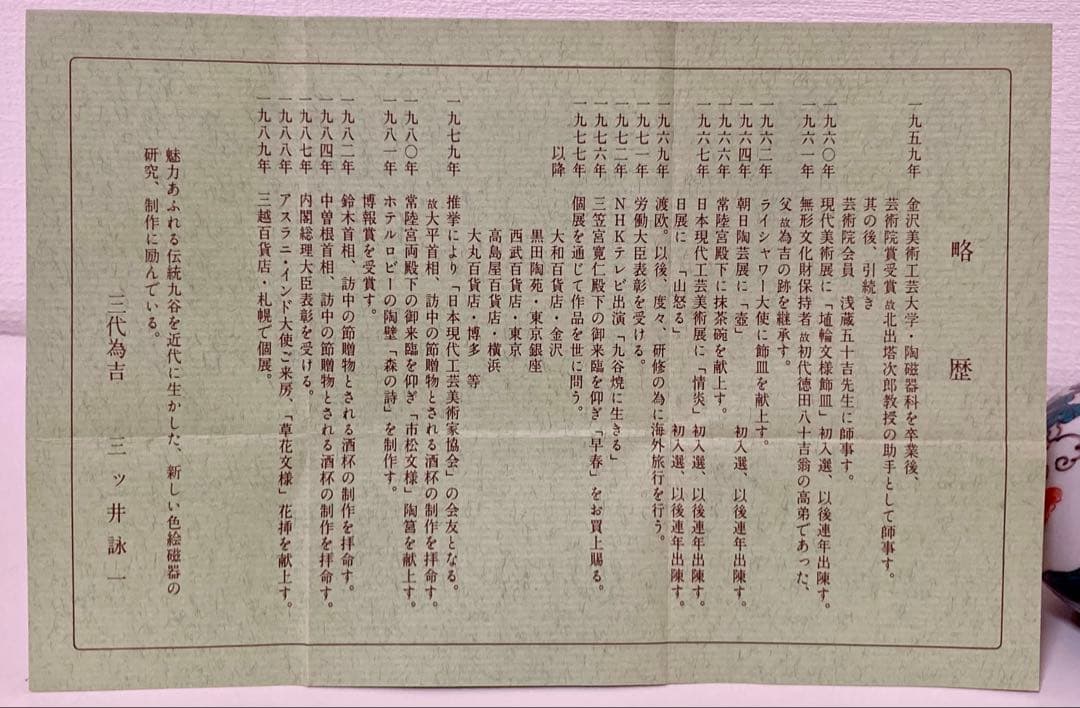 略歴
一九五九年 金沢美術工芸大学・陶磁器科を卒業後、
芸術院賞受賞故北出塔次郎教授の助手として師事。
其の後、引続き
芸術院会員 浅蔵五十吉先生に師事す。
一九六〇年 現代美術展に「埴輪文様飾皿」初入選、以後連年出陳す。
一九六一年 無形文化財保持者故初代徳田八十吉翁の高弟であった、
父故為吉の跡を継承す。
一九六二年 ライシャワー大使に飾皿を献上す。
一九六四年 朝日陶芸展に「壺」 初入選、以後連年出陳す。
一九六六年 常陸宮殿下に抹茶碗を献上す。
一九六七年 日本現代工芸美術展に「情炎」初入選、以後連年出陳す。
日展に 「山怒る」 初入選、以後連年出陳す。
一九六九年 渡欧。以後、度々、研修の為に海外旅行を行う。
一九七一年 労働大臣表彰を受ける。
一九七二年 NHKテレビ出演「九谷焼に生きる」
一九七六年 三笠宮寛仁殿下の御来臨を仰ぎ「早春」をお買上賜る。
一九七七年 個展を通じて作品を世に問う。
以降 大和百貨店・金沢
黒田陶苑・東京銀座
西武百貨店・東京
高島屋百貨店・横浜
大丸百貨店・博多 等
一九七九年 推挙により「日本現代工芸美術家協会」の会友となる。
故大平首相、訪中の節贈物とされる酒杯の制作を拝命す。
一九八〇年 常陸宮両殿下の御来臨を仰ぎ「市松文様」陶筥を献上す。
一九八一年 ホテルロビーの陶壁「森の詩」を制作す。
博報賞を受賞す。
一九八二年 鈴木首相、訪中の節贈物とされる酒杯の制作を拝命す。
一九八四年 中曽根首相、訪中の節贈物とされる酒杯の制作を拝命す。
一九八七年 内閣総理大臣表彰を受ける。
一九八八年 アスラニ・インド大使ご来房、「草花文様」花挿を献上す。
一九八九年 三越百貨店・札幌で個展。
魅力あふれる伝統九谷を近代に生かした、新しい色絵磁器の
研究、制作に励んでいる。
三代為吉 三ッ井詠一